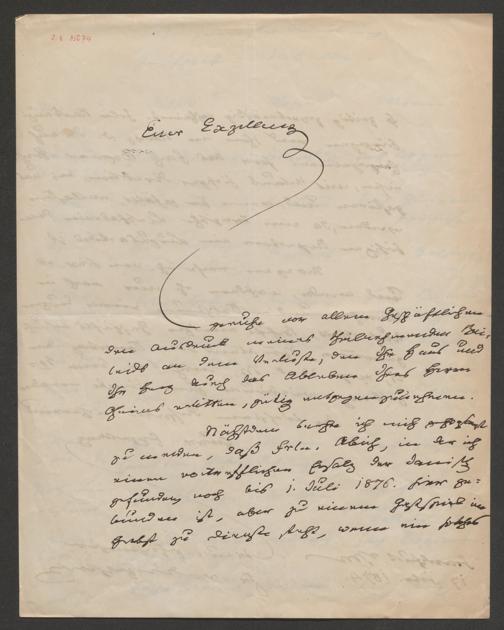 Euer Exzellenz
geruhe vor allem Geschäftlichen
den Ausdruck meines theilnehmenden Bei-
leids an dem Verluste, den Ihr Haus und
Ihr Herz durch das Ableben Ihres Herrn
erlitten, gütig entgegenzunehmen.
Nächstdem beehre ich mich
zu melden, daß Frln. Abich, in der ich
einen vortrefflichen Ersatz der
gefunden, noch bis 1. Juli 1876. hier ge-
bunden ist, aber zu einem Gastspiel im
Herbst zu Dienste steht, wenn ein solches